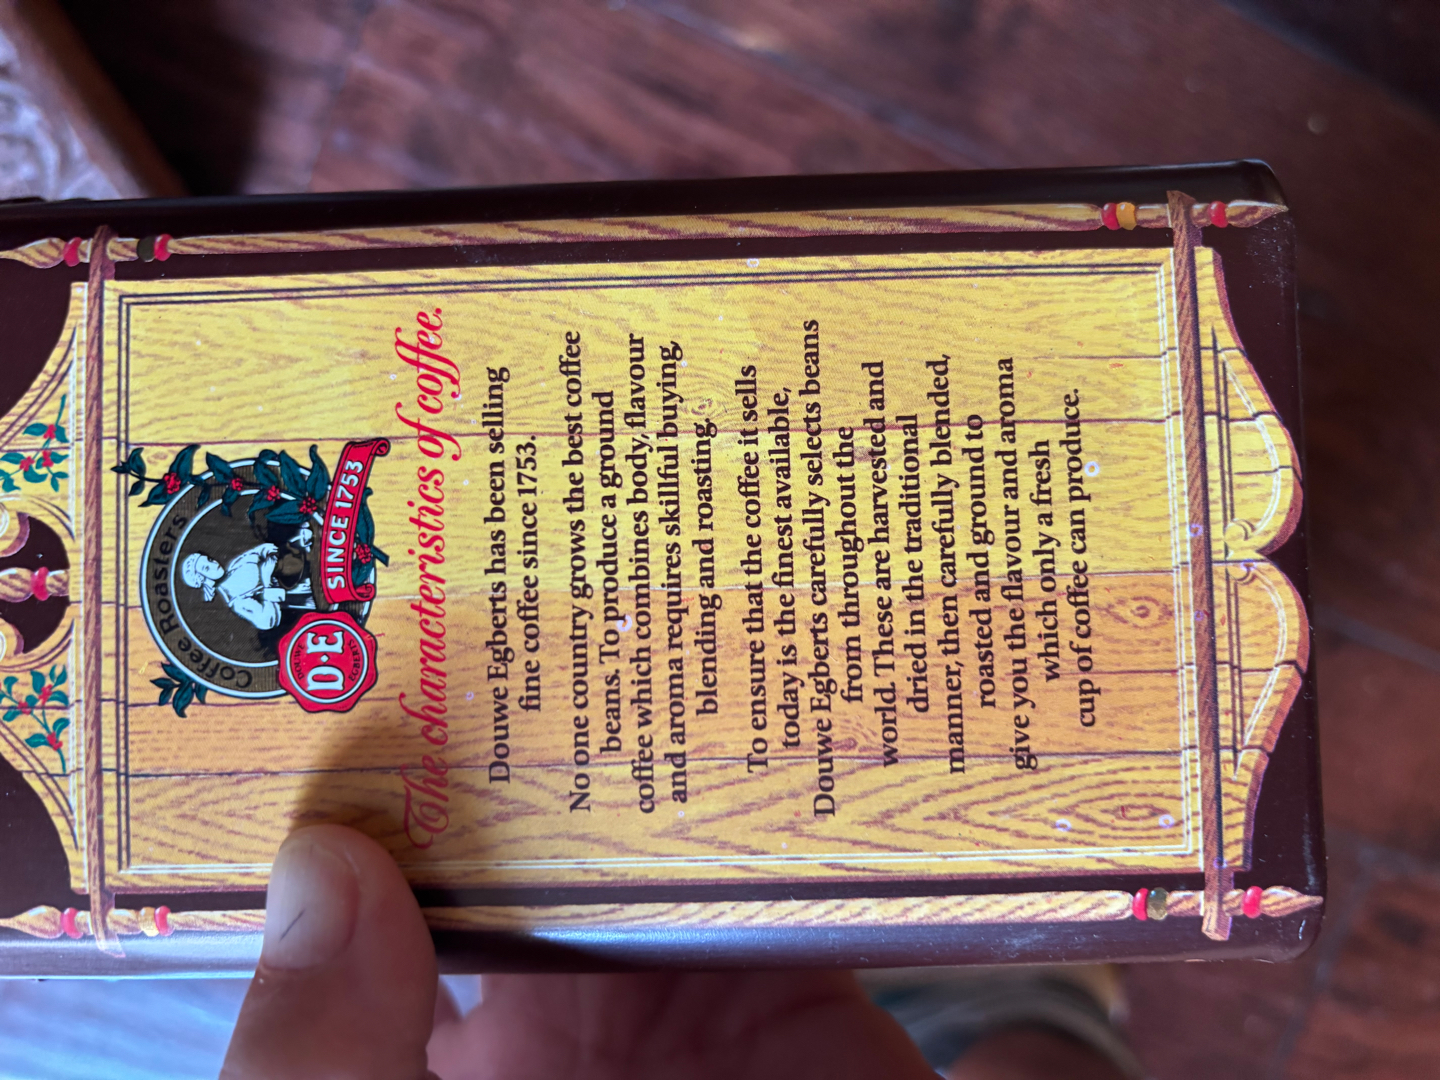 Coffee Roasters
SINCE 1753
DOUWE
D·E
EGBERTS
The characteristics of coffee.
Douwe Egberts has been selling
fine coffee since 1753.
No one country grows the best coffee
beans. To produce a ground
coffee which combines body, flavour
and aroma requires skillful buying,
blending and roasting.
To ensure that the coffee it sells
today is the finest available,
Douwe Egberts carefully selects beans
from throughout the
world. These are harvested and
dried in the traditional
manner, then carefully blended,
roasted and ground to
give you the flavour and aroma
which only a fresh
cup of coffee can produce.